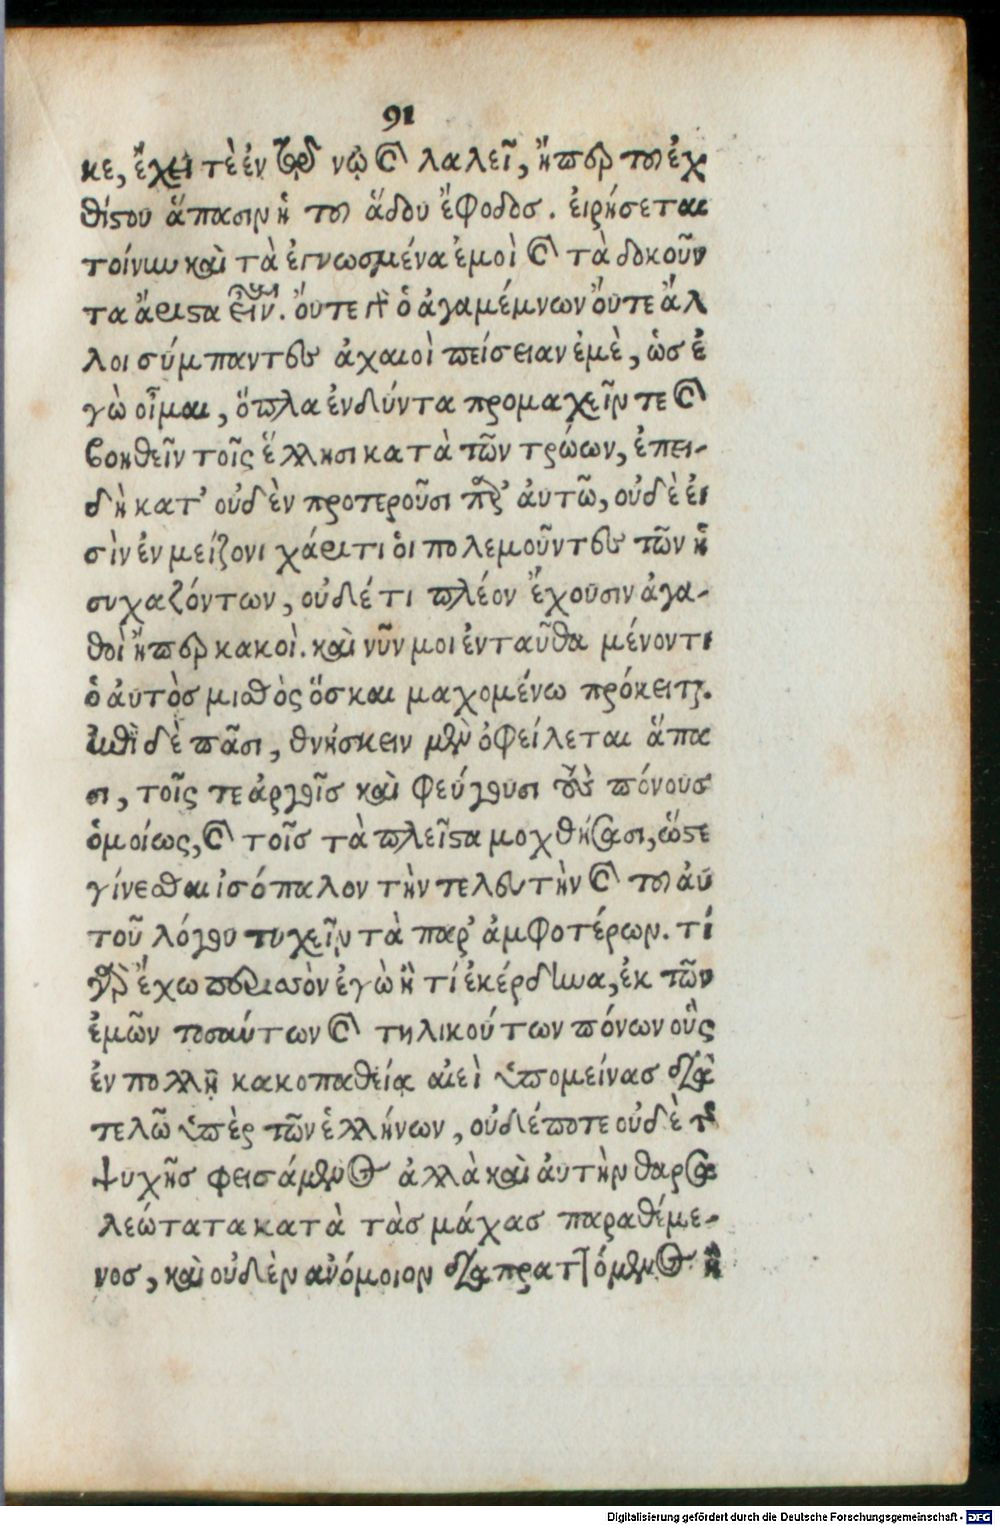 91
κε, ἔχει τὲ ἐν τῷ νῷ καὶ λαλεῖ, ἤπερ του ἐχ
θίϛου ἅπασιν ἡ του ἅδου ἔφοδος. ἐιρήσεται
τοίνυν καὶ τὰ ἐγνωσμένα ἐμοὶ καὶ τὰ δοκοῦν
τα ἄριϛα εἶναι. ὄυτε γὰρ ὁ ἀγαμέμνων ὄυτε ἄλ
λοι σύμπαντες ἀχαιοὶ πείσειαν ἐμὲ, ὡσ ἐ
γὼ οἶμαι, ὅπλα ἐνδύντα προμαχεῖν τε καὶ
βοηθεῖν τοῖς ἕλλησι κατὰ τῶν τρώων, ἐπει-
δὴ κατ' οὐδὲν προτεροῦσι παρ' ἀυτῶ, οὐδὲ ἐι
σὶν ἐν μείζονι χάριτι ὁι πολεμοῦντες τῶν ἡ
συχαζόντων, οὐδέ τι πλέον ἔχουσιν ἀγα-
θοὶ ἤπερ κακοὶ. καὶ νῦν μοι ἐνταῦθα μένοντι
ὁ ἀυτὸσ μισθὸς ὅσ και μαχομένω πρόκειται.
ἐπεὶ δὲ πᾶσι, θνήσκειν μὲν ὀφείλεται ἅπα
σι, τοῖς τε ἀργοῖσ καὶ φεύγουσι τοὺς πόνουσ
ὁμοίως, καὶ τοῖσ τὰ πλεῖϛα μοχθήσασι, ὥϛε
γίνεσθαι ἰσόπαλον τὴν τελευτὴν καὶ του ἀυ
τοῦ λόγου τυχεῖν τὰ παρ' ἀμφοτέρων. τί
γὰρ ἔχω περισσὸν ἐγὼ ἢ τί ἐκέρδηνα, ἐκ τῶν
ἐμῶν τοσαύτων καὶ τηλικούτων πόνων οὓς
ἐν πολλῇ κακοπαθείᾳ αἰεὶ ὑπομείνασ δια
τελῶ ὑπὲρ τῶν ἑλλήνων, οὐδέποτε οὐδὲ τῆς
ψυχῆσ φεισάμενος ἀλλὰ καὶ ἀυτὴν θαρσα
λεώτατα κατὰ τὰσ μάχασ παραθέμε-
νοσ, καὶ οὐδὲν ἀνόμοιον διαπραττόμενος ἢ
Digitalisierung gefördert durch die Deutsche Forschungsgemeinschaft - DFG